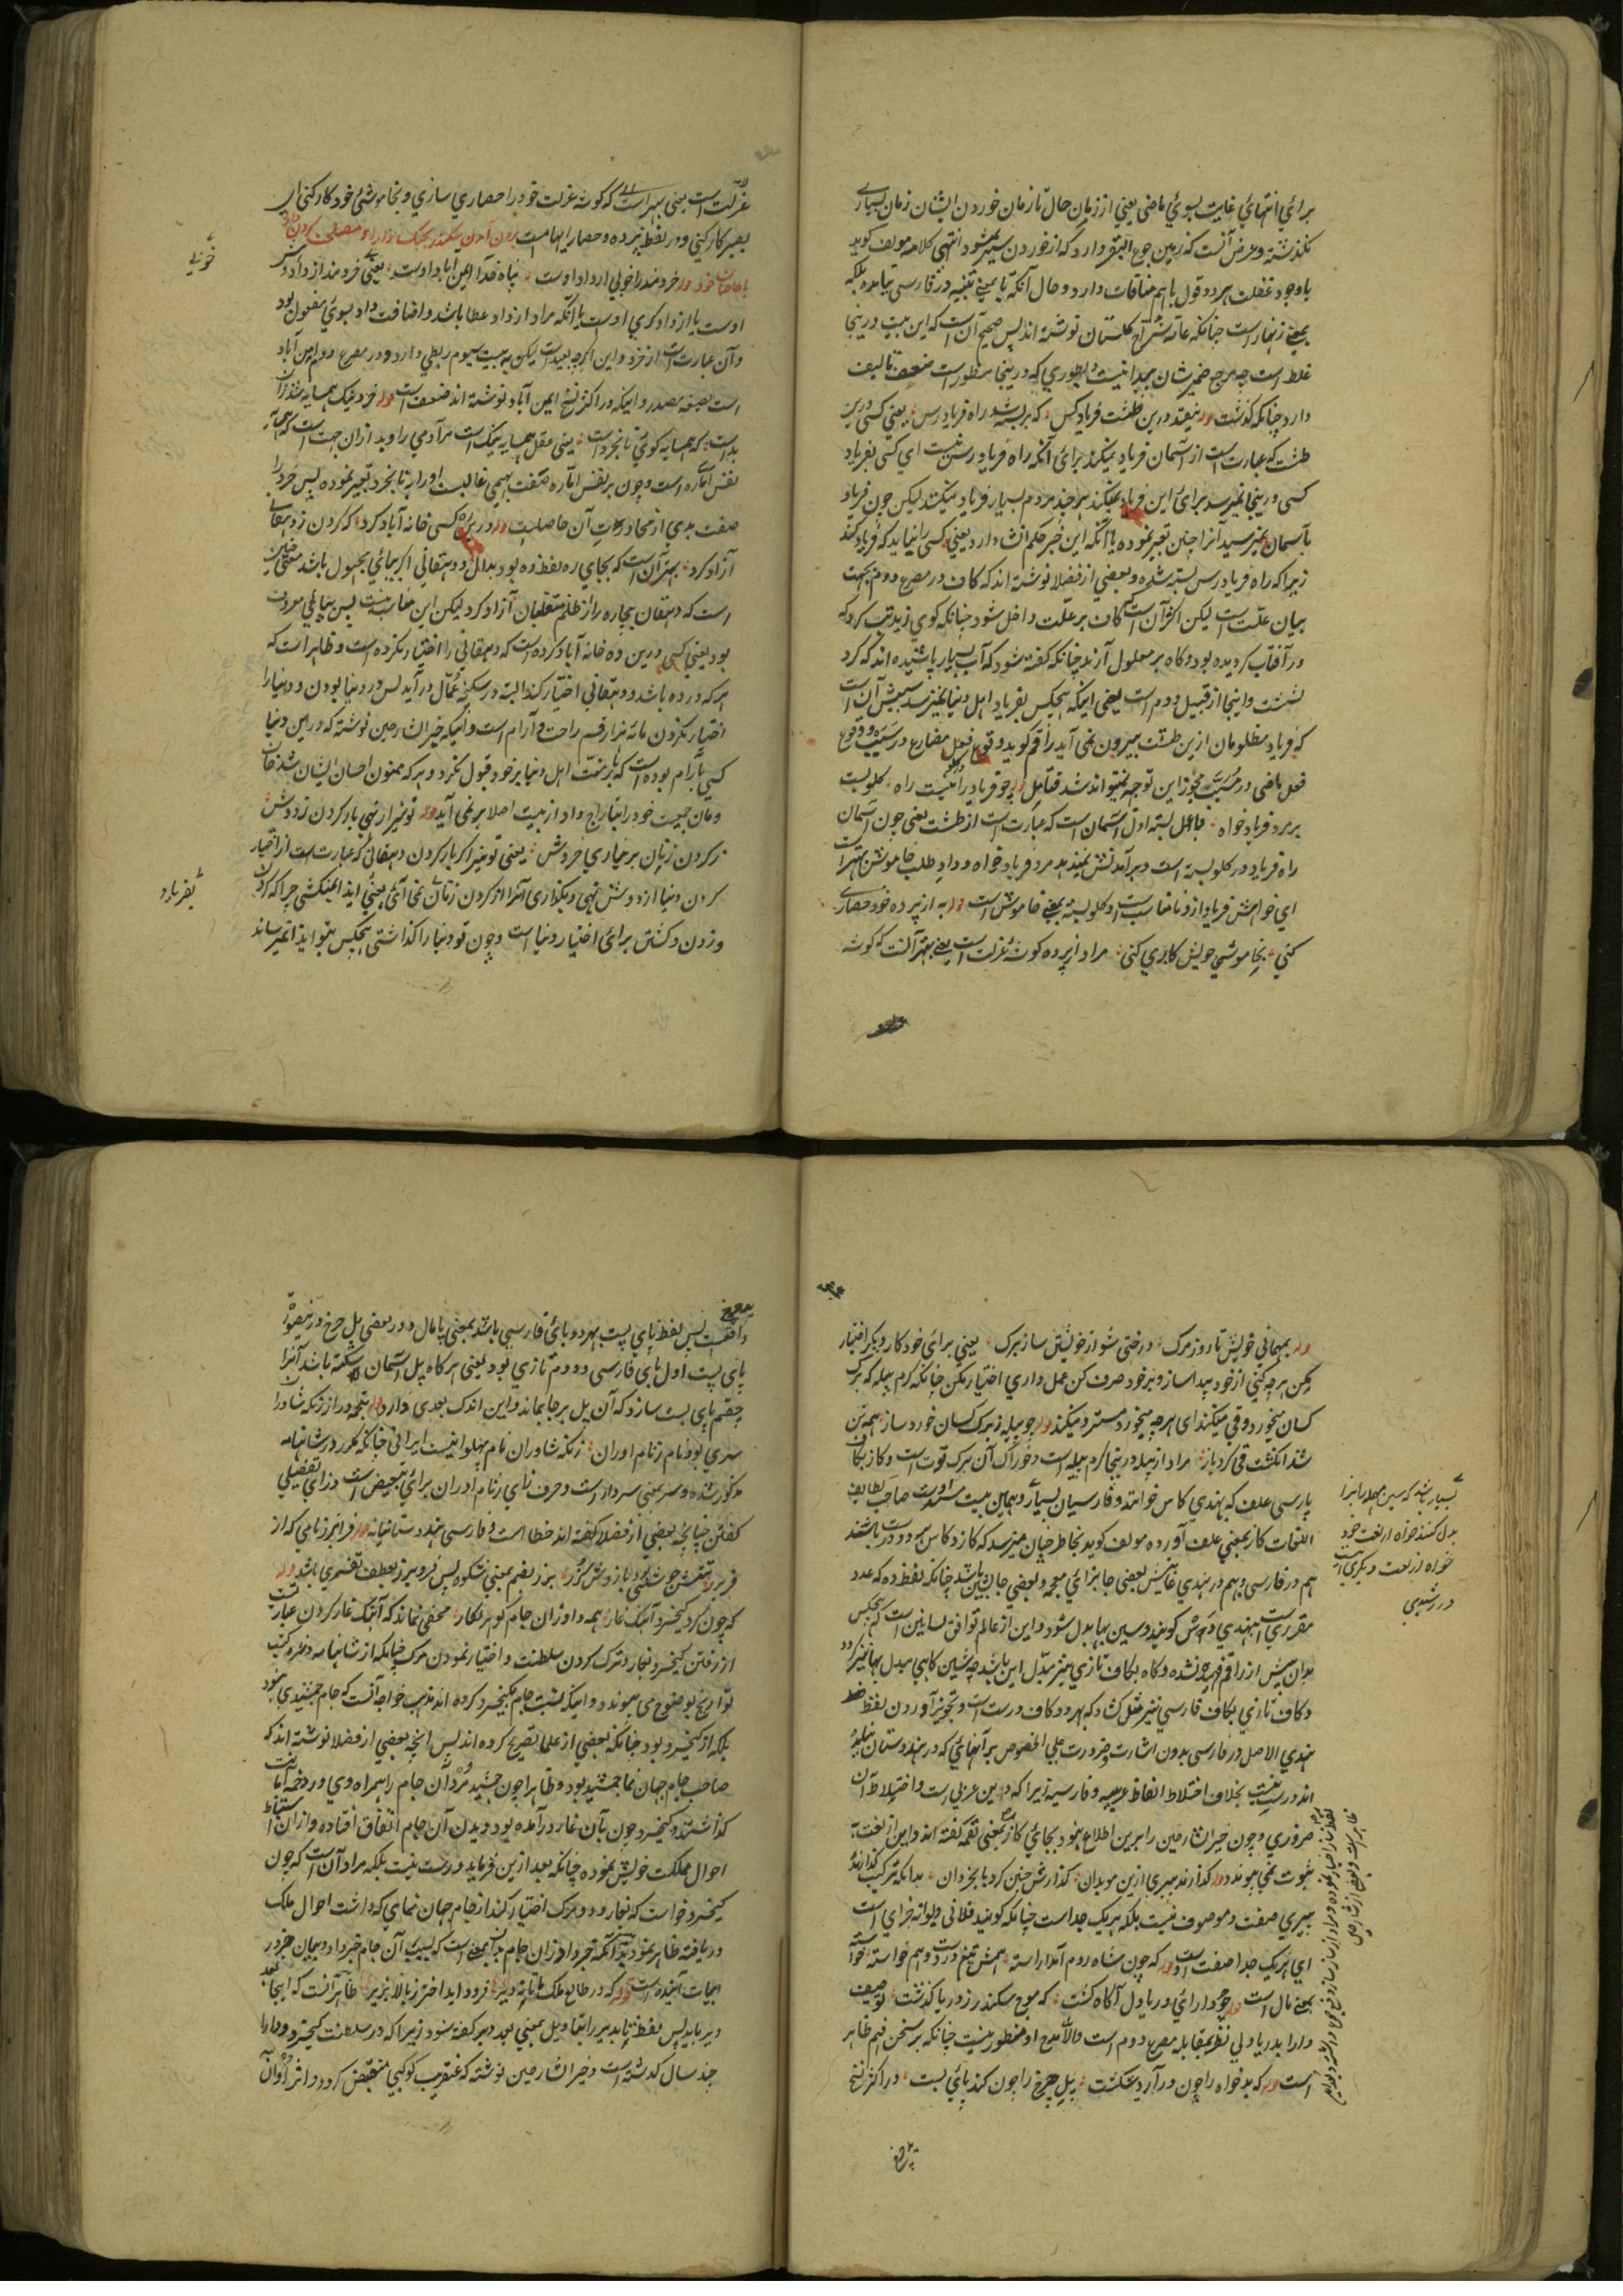 برای انتهائی غایت بسوئی ماضی یعنی از زمان حال تا زمان خوردن ایشان زمان بسیاری
نگذشته و غرض آنست که زمین جوع البقر دارد که از خوردن سیر نمیشود انتهی کلامه مولف گوید
باوجود غفلت هر دو قول باهم منافات دارد و حال آنکه تا بمعنی تنبیه در فارسی نیامده بلکه
بمعنی زنهار است چنانکه عامه شراح گلستان نوشته اند پس صحیح آن است که این بیت درینجا
غلط است چه مرجع ضمیر شان پیدا نیست و بطوری که درینجا مسطور است ضعف تالیف
دارد چنانکه گذشت قوله نیفتد درین طشت فریاد کس که بربسته شد راه فریاد رس یعنی کسی درین
طشت که عبارت است از آسمان فریاد نمیکند برای آنکه راه فریادرس نیست ای کسی بفریاد
کسی درینجا نمیرسد برای این فریاد نمیکند هر چند مردم بسیار فریاد میکنند لیکن چون فریاد
بآسمان نمیرسید آنرا چنین تعبیر نموده یا آنکه این خبر حکم انشا دارد یعنی کسی را نباید که فریاد کند
زیرا که راه فریادرس بسته شده و بعضی از فضلا نوشته اند که کاف در مصرع دوم بجهت
بیان علت است لیکن اکثر آن است که کاف بر علت داخل شود چنانکه گوئی زید تب کرد که
در آفتاب گردیده بود و گاه بر معلول آرند چنانکه گفته شود که آب بسیار پاشیده اند که گرد
نشست و اینجا از قبیل دوم است یعنی اینکه هیچکس بفریاد اهل دنیا نمیرسد سببش آن است
که فریاد مظلومان ازین طشت بیرون نمی آید راقم گوید وقوع فعل مضارع در سبب و وقوع
فعل ماضی در مسبب مجوز این توجیه نمیتواند شد فتامل قوله چو فریاد را نیست راه گلو بست
بر مرد فریاد خواه فاعل بسته اول آسمان است که عبارت است از طشت یعنی چون آسمان
راه فریاد در گلو بسته است و برآمدنش نمیدهد مرد فریاد خواه و داد طلب خاموش بهتر است
ای خواهش فریاد ازو نامناسب است و گلو بسته بمعنی خاموش است قوله به از پرده خود حصاری
کنی بخاموشی خویش کاری کنی مراد از پرده گوشه عزلت است یعنی بهتر آنست که گوشه
عزلت است یعنی بهتر است که گوشه عزلت خود را حصاری سازی و بخاموشئ خود کار کنی ای
بصبر کار کنی و در لفظ پرده و حصار ایهام است بیرون آمدن سکندر بجنگ دارا و مصلحت کردن
با خاصان خود قوله خردمند را خوبی از داد اوست پناه خدا ایمن آباد اوست یعنی خردمند از داد
اوست یا از داد گری اوست یا آنکه مراد از داد عطا باشد و اضافت داد بسوئی مفعول بود
و آن عبارت است از خرد و این اگرچه بعید است لیکن به بیت سیوم ربطی دارد و در مصرع دوم امن آباد
است بصیغه مصدر و اینکه در اکثر نسخ ایمن آباد نوشته اند ضعف است قوله خرد نیک همسایه شد زان
بد است که همسایه کوی نابخرد است یعنی عقل همسایه نیک است مر آدمی را و بد ازان جهت است که همسایه
نفس اماره است و چون بر نفس اماره صفت بهیمی غالبست او را به نابخرد تعبیر نموده پس خرد را
صفت بدی از مجاورت آن حاصلست قوله درین ره کسی خانه آباد کرد که گردن ز دهقانی
آزاد کرد بهتر آن است که بجای ره لفظ ده بود بدال و دهقانی اگر بیائی مجهول باشد معنی چنان
است که دهقان بیچاره را از ظلم متغلبان آزاد کرد لیکن این مناسب نیست پس بیای معروف
بود یعنی کسی درین ده خانه آباد کرده است که دهقانی را اختیار نکرده است و ظاهر است که
هر که در ده باشد و دهقانی اختیار کند البته در شکنجه عمال درآید پس در دنیا بودن و دنیا را
اختیار نکردن مانه هزار قسم راحت و آرام است و اینکه خیر الشارحین نوشته که درین دنیا
کسی بآرام بوده است که بار منت اهل دنیا بر خود قبول نکرد و هر که ممنون احسان ایشان شد خان
ومان جمعیت خود را بتاراج داد از بیت اصلا بر نمی آید قوله تو نیز ار نهی بار گردن ز دوش
ز گردن زنان بر نیاری خروش یعنی تو نیز اگر بار گردن دهقانی که عبارت است از اختیار
کردن دنیا از دوش نهی و بگذاری آنرا از گردن زنان نمی آئی یعنی ایذا نمیکشی چرا که گردن
زدن و کشتن برای اختیار دنیا است و چون تو دنیا را گذاشتی هیچکس بتو ایذا نمیرساند
خوبیئے
بفریاد
قوله بمهمانی خویش تا روز مرگ درختی شو از خویشتن ساز برگ یعنی برای خود کار دیگر اختیار
مکن هر چه کنی از خود پیدا ساز و بر خود صرف کن عمل داری اختیار مکن چنانکه کرم پیله که برگ
کسان میخورد و قی میکند ای هر چه میخورد مسترد میکند قوله چو پیله ز برگ کسان خورد ساز همه تن
شد انگشت قی کرد باز مراد از پیله درینجا کرم پیله است و خوراک آن برگ توت است و کاز بکاف
پارسی علف که بهندی کاس خوانند و فارسیان بسیار و همین بیت سند است صاحب لطایف
اللغات کاز بمعنی علف آورده مولف گوید بخاطر چنان میرسد که کاز و کاس هر دو درست باشند
هم در فارسی و هم در هندی غایتش بعضی جا بزائی معجمه و بعضی جا بسین باشد چنانکه لفظ ده که عدد
مقرری است بهندی دس گویند و سین بها بدل شود و این از عالم توافق لسانین است که هیچکس
بدان پیش از راقم فقیر نشده و کاه بکاف تازی نیز مبدل این باشد چه شین کاهی مبدل بها نیز گردد
و کاف تازی بکاف فارسی نیز مثل کشاد که بهر دو کاف درست است و تجویز آوردن لفظ
هندی الاصل در فارسی بدون اشارت و ضرورت علی الخصوص بر آنهائی که در هندوستان نبوده
اند درست نیست بخلاف اختلاط الفاظ عربیه و فارسیه زیرا که دین عربی است و اختلاط آن
ضروری و چون خیر الشارحین را برین اطلاع نبود بجائی کاز بمعنی تقمه گفته اند و این از لغت
ثبوت نمی پیوندد قوله گذارنده پیری ازین موبدان گذارش چنین کرد با بخردان بدانکه ترکیب گذارنده
پیری صفت و موصوف نیست بلکه هریک جداست چنانکه گویند فلانی دیوانه خرای است
ای هریک جدا صفت اوست قوله که چون شاه روم آمد آراسته همش تیغ در دست و هم خواسته خواسته
بمعنی مال است قوله چو دارائی دریا دل آگاه گشت که موج سکندر ز دریا گذشت توصیف
دارا بدریا دلی نظر بمقابله مصرع دوم است والا مدح او منظور نیست چنانکه بر سخن فهم ظاهر
است قوله که بدخواه را چون درآرد شکست پل چرخ را چون کند پائی بست در اکثر نسخ
بسیار باشد که سین مهمله را بزا
بدل کنند خواه از لغت خود
خواه از لغت دیگری است
در رشیدی
واقعست پس لفظ پای پست بهر دو بائی فارسی باشد بمعنی پامال و در بعضی پل چرخ در نیصورت
پای پست اول بای فارسی و دوم تازی بود یعنی هر گاه پل آسمان شکسته باشد آنرا
چقسم پای بست سازد که آن پل بر جا بماند و این اندک بعدی دارد قوله بتجه در از زنگه شاورا
سری بود نام ز نام اوران زنگه شاوران نام پهلوانیست ایرانی چنانکه مکرر در شاهنامه
مذکور شده و سر بمعنی سردار است و حرف زای ز نام اوران برائی تبعیض است و زای تفضیلی
گفتن چنانچه بعضی از فضلا گفته اند خطا است و فارسی هندوستانیانه قوله فرامرز نامی که از
که چون کرد کیخسرو آهنگ غار همه داوران جام گوهر نگار مخفی نماند که آهنگ غار کردن عبارت
از رفتن کیخسرو بغار و ترک کردن سلطنت و اختیار نمودن مرگ چنانکه از شاهنامه و غیره کتب
تواریخ بوضوح می پیوندد و اینکه نسبت جام بکیخسرو کرده اند مذهب خواجه آنست که جام جمشیدی نبود
بلکه از کیخسرو بود چنانکه بعضی از علما تصریح کرده اند پس انچه بعضی از فضلا نوشته اند که
صاحب جام جهان نما جمشید بود و ظاهرا چون جمشید مرد آن جام را همراه وی در دخمه امانت
گذاشتند و کیخسرو چون بآن غار درآمده بود و بدیدن آن جام اتفاق افتاده و ازان استنباط
احوال مملکت خویش نموده چنانکه بعد ازین فرماید درست نیست بلکه مراد آن است که چون
کیخسرو خواست که بغار رود و مرگ اختیار کند از جام جهان نمای که داشت احوال ملک
دریافته ظاهر نمود
ابیات آینده است قوله که در طالع ملک ما تا نه دیر فرود آید اختر ز بالا بزیر ظاهر آنست که اینجا بعد
دیر باید پس لفظ تا بدیر را بتاویل بمعنی بعد دیر گفته شود زیرا که در سلطنت کیخسرو و دارا
چند سال گذشته است و خیر الشارحین نوشته که عنقریب کوکبی منقبض گردد و اثر آوان